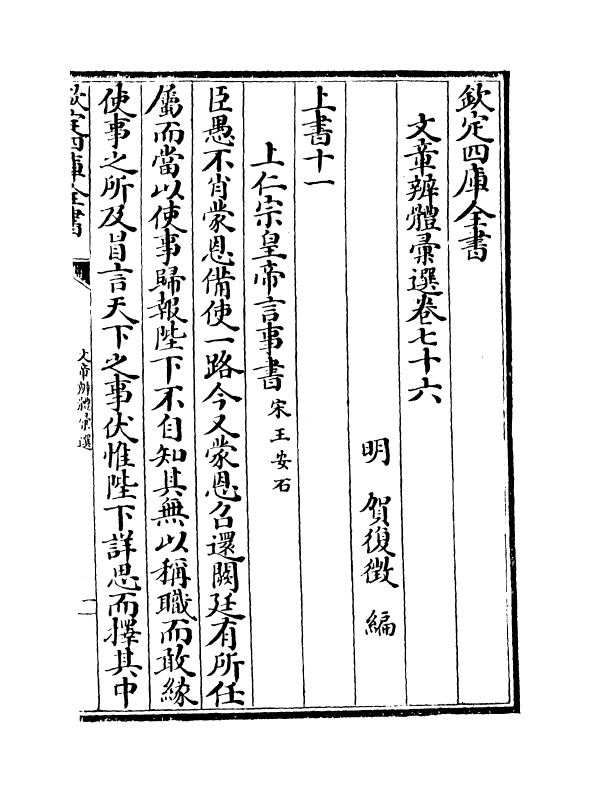 欽定四庫全書
文章辨體彚選卷七十六
明 賀復徵 編
上書十一
上仁宗皇帝言事書 宋王安石
臣愚不肖蒙恩備使一路今又蒙恩召還闕廷有所任
屬而當以使事歸報陛下不自知其無以稱職而敢緣
使事之所及冒言天下之事伏惟陛下詳思而擇其中
欽定四庫全書
文章辨體彚選
一